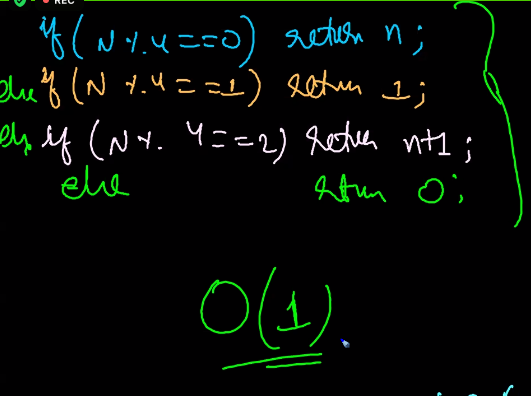 REC
if ( N % 4 == 0 ) return n ;
else if ( N % 4 == 1 ) return 1 ;
else if ( N % 4 == 2 ) return n+1 ;
else return 0 ;
O(1)